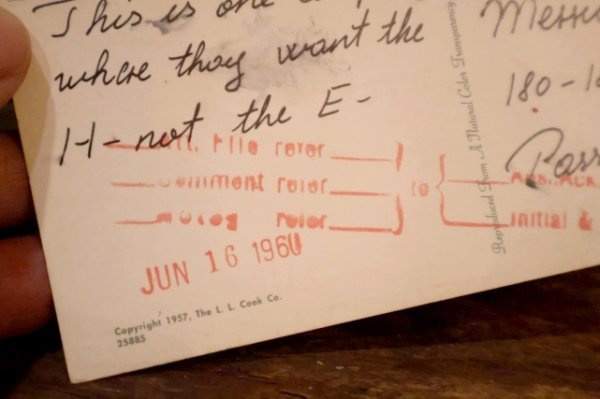 This is one
where they want the
H- not the E-
Mr. File refer
Comment refer
refer
to
initial &
JUN 16 1960
Copyright 1957, The L. L. Cook Co.
25885
Reproduced From A Natural Color Transparency
180-1